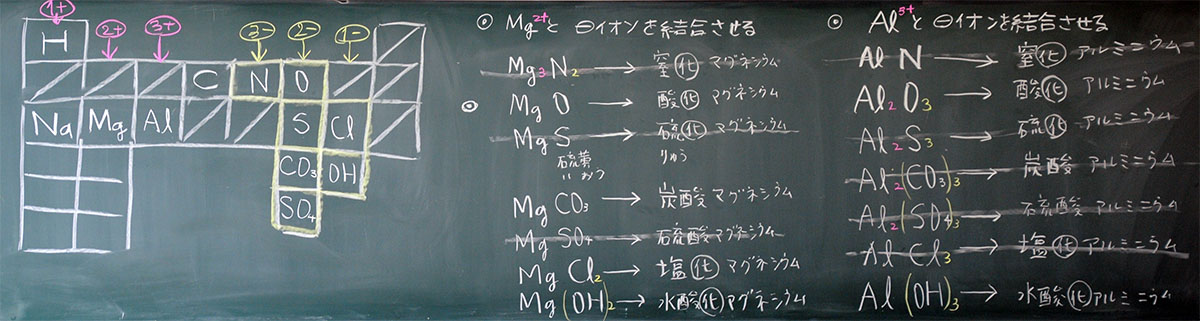 1+
H
2+ 3+ 3- 2- 1-
C N O
Na Mg Al S Cl
CO3 OH
SO4
◎ Mg2+と⊖イオンを結合させる
Mg3N2 → 窒化マグネシウム
◎ MgO → 酸化マグネシウム
MgS → 硫化マグネシウム
硫黄 りゅう
いおう
MgCO3 → 炭酸マグネシウム
MgSO4 → 硫酸マグネシウム
MgCl2 → 塩化マグネシウム
Mg(OH)2 → 水酸化マグネシウム
◎ Al3+と⊖イオンを結合させる
AlN → 窒化アルミニウム
Al2O3 → 酸化アルミニウム
Al2S3 → 硫化アルミニウム
Al2(CO3)3 → 炭酸アルミニウム
Al2(SO4)3 → 硫酸アルミニウム
AlCl3 → 塩化アルミニウム
Al(OH)3 → 水酸化アルミニウム